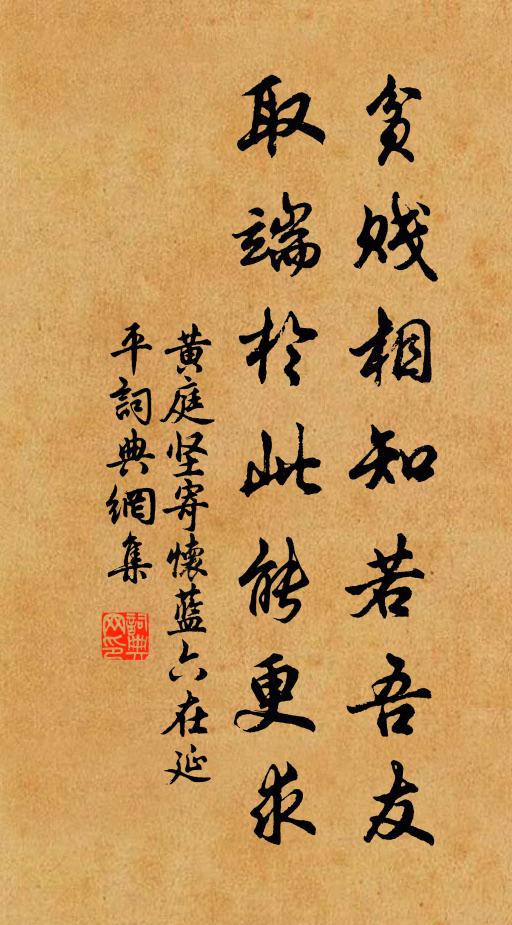 贫贱相知若吾友
取端於此能更求
黄庭坚寄懷蓝六在延
平詞典網集
詞典网印